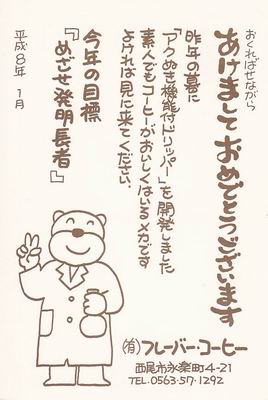 おくればせながら
あけましておめでとうございます
昨年の暮に
「アクぬき機能付ドリッパー」を開発しました
素人でもコーヒーがおいしくはいるメカです
よければ見に来てください。
今年の目標
『めざせ発明長者』
平成8年 1月
㈲フレーバー・コーヒー
西尾市永楽町4-21
TEL.0563・57・1292